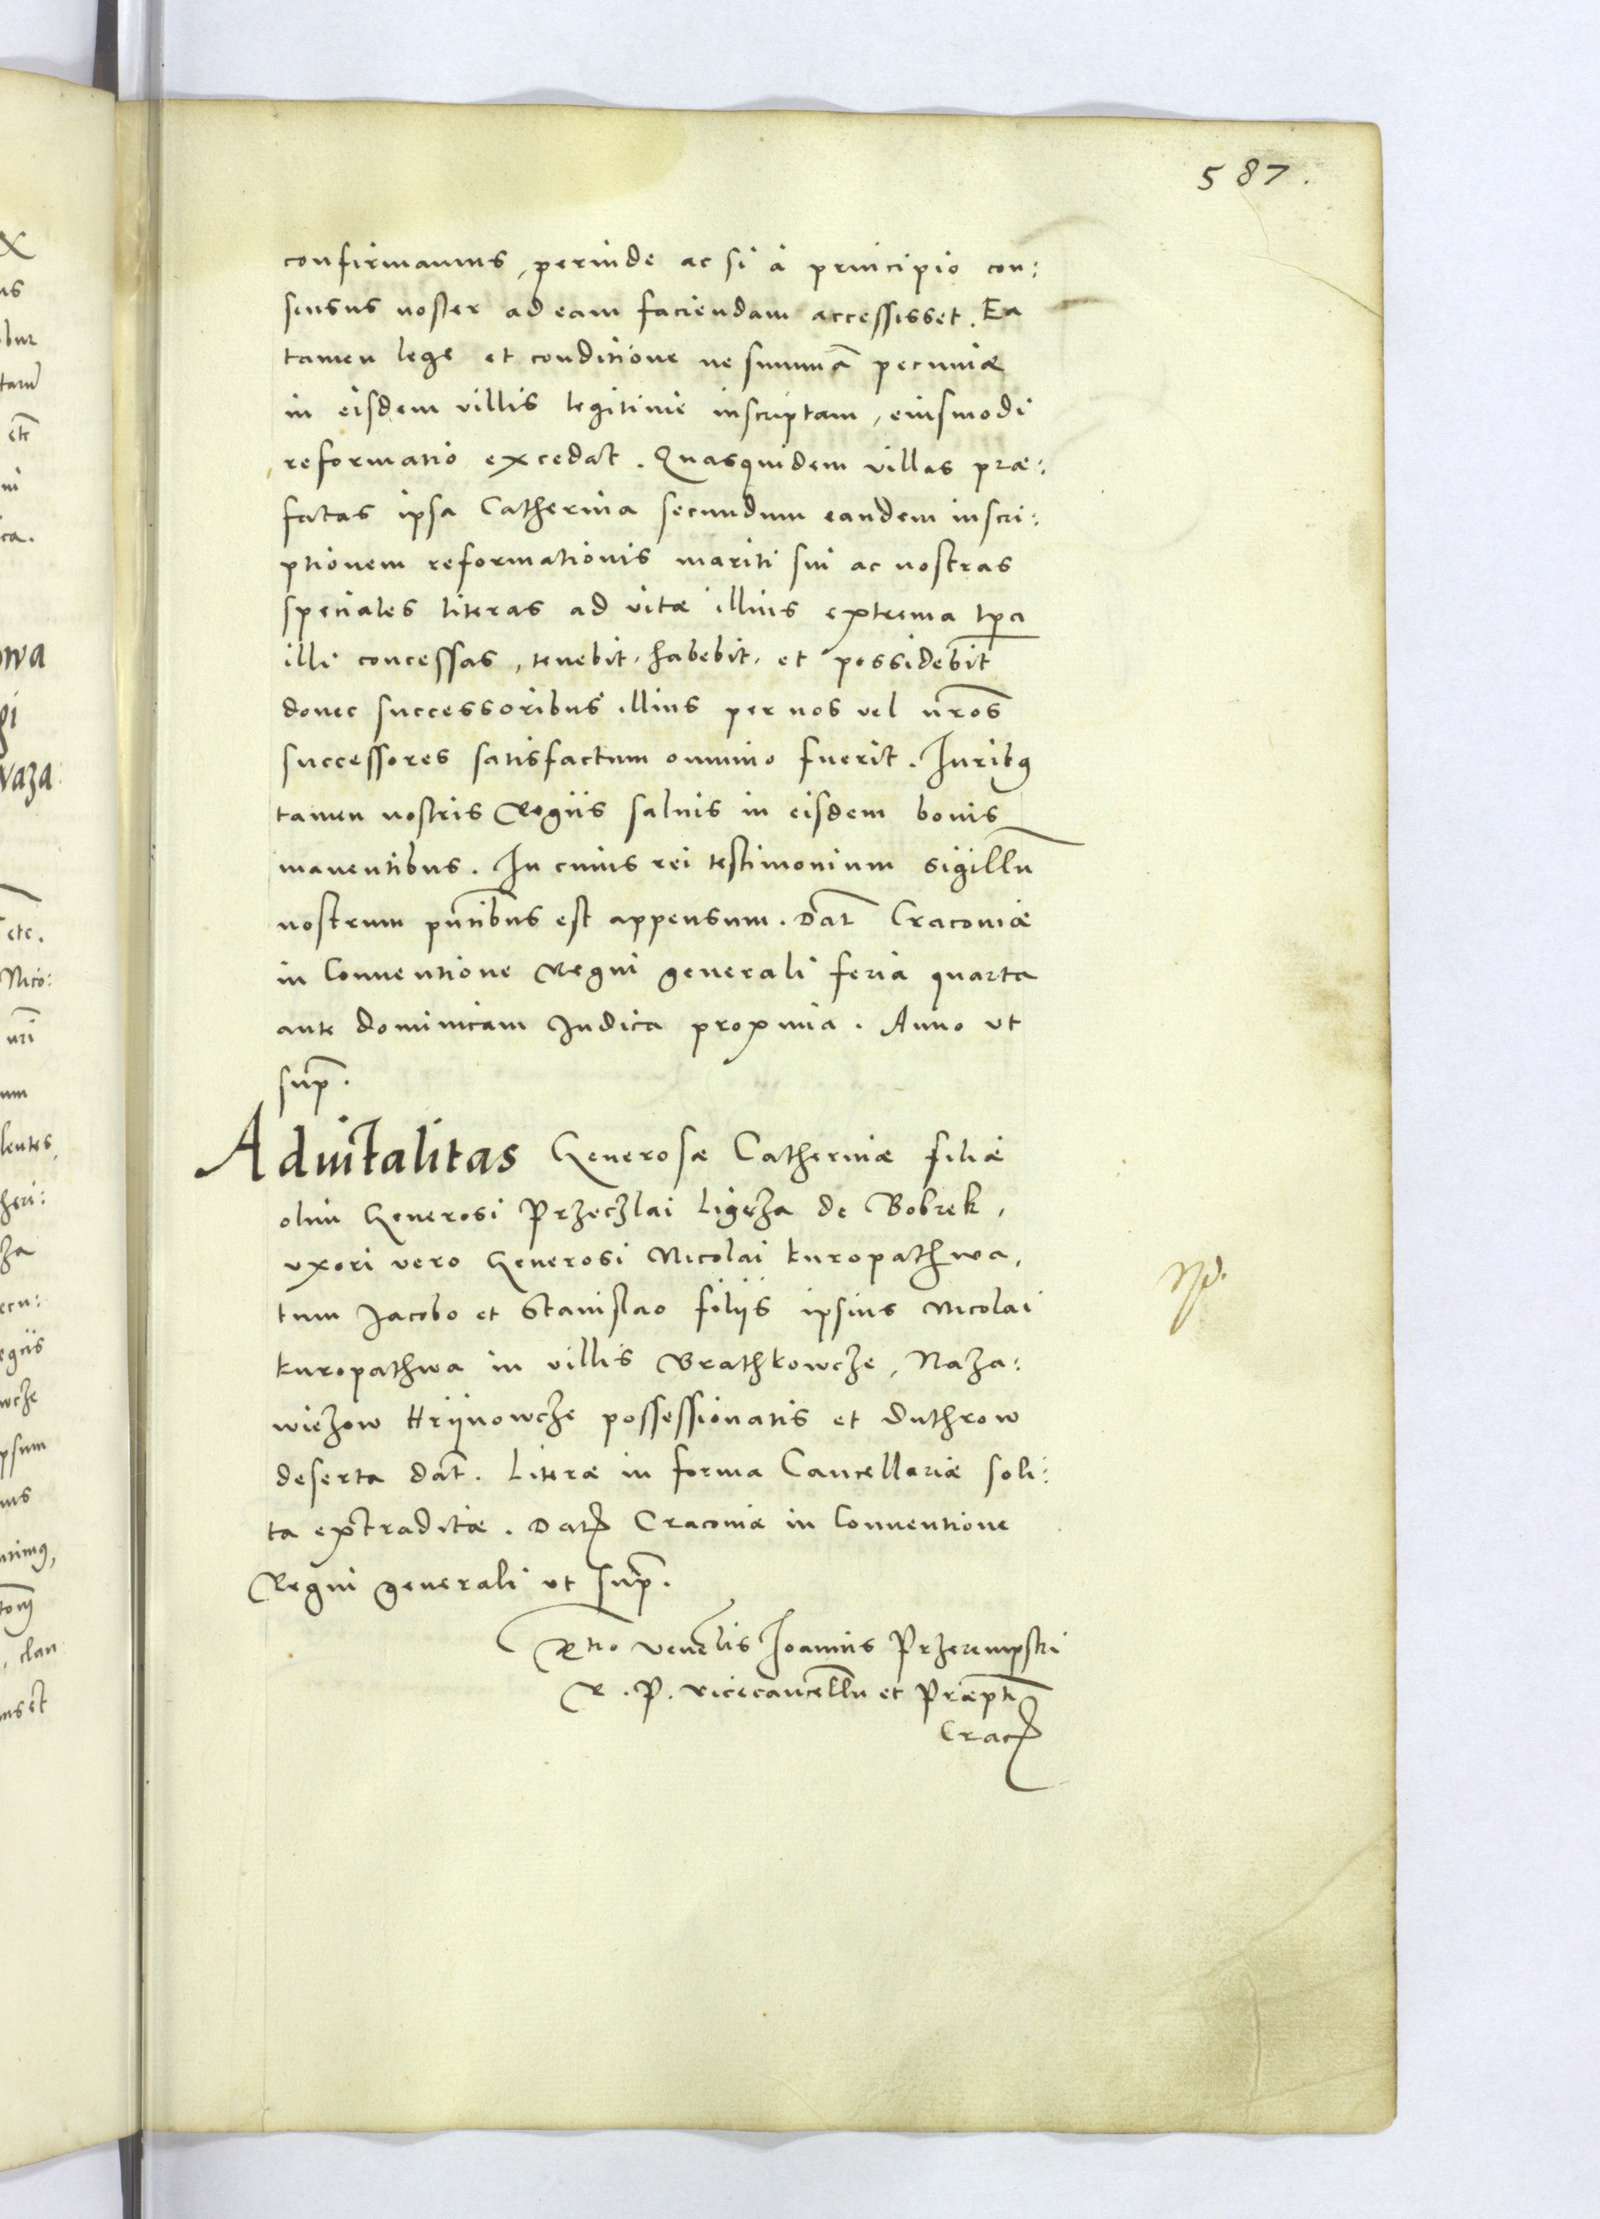 587.
confirmamus, perinde ac si à principio con:
sensus noster ad eam faciendam accessisset. Ea
tamen lege et conditione ne summā pecuniæ
in eisdem villis legitime inscriptam, eiusmodi
reformatio excedat. Quasquidem villas præ:
fatas ipsa Catherina secundum eandem inscri:
ptionem reformationis mariti sui ac nostras
speciales literas ad vitæ illius extrema tp̄a
illi concessas, tenebit, habebit, et possidebit
donec successoribus illius per nos vel nr̄os
successores satisfactum omnino fuerit. Iuribꝫ
tamen nostris Regiis salvis in eisdem bonis
manentibus. In cuius rei testimonium sigillū
nostrum pn̄tibus est appensum. Dat̄ Cracoviæ
in Conventione Regni generali feria quarta
ante dominicam Iudica proxima. Anno ut
sup̄.
Advitalitas Generosæ Catherinæ filiæ
olim Generosi Przeczlai Ligęza de Bobrek,
uxori vero Generosi Nicolai Kuropathwa,
tum Jacobo et Stanislao filiis ipsius Nicolai
Kuropathwa in villis Brathkowcze, Naza:
wiezow Hrijnowcze possessionatis et Duthrow
deserta dat̄. Literæ in forma Cancellariæ soli:
ta extraditæ. Dat̄ Cracoviæ in Conventione
Regni generali ut sup̄.
Rtio Venēlis Joannis Przerempski
R. P. Vicecancell̄ii et Præpti
Crac̄